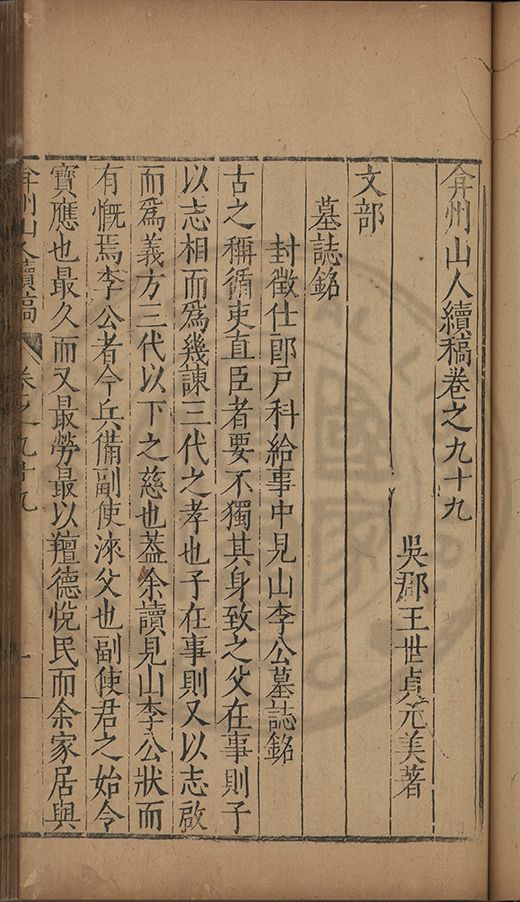 弇州山人續稿卷之九十九
吳郡王世貞元美著
文部
墓誌銘
封徵仕郎戶科給事中見山李公墓誌銘
古之稱循吏直臣者要不獨其身致之父在事則子
以志相而為幾諫三代之孝也子在事則又以志啟
而為義方三代以下之慈也葢余讀見山李公狀而
有慨焉李公者今兵備副使淶父也副使君之始令
寶應也最久而又最勞最以羶德悅民而余家居與
弇州山人續稿 卷之九十九 一